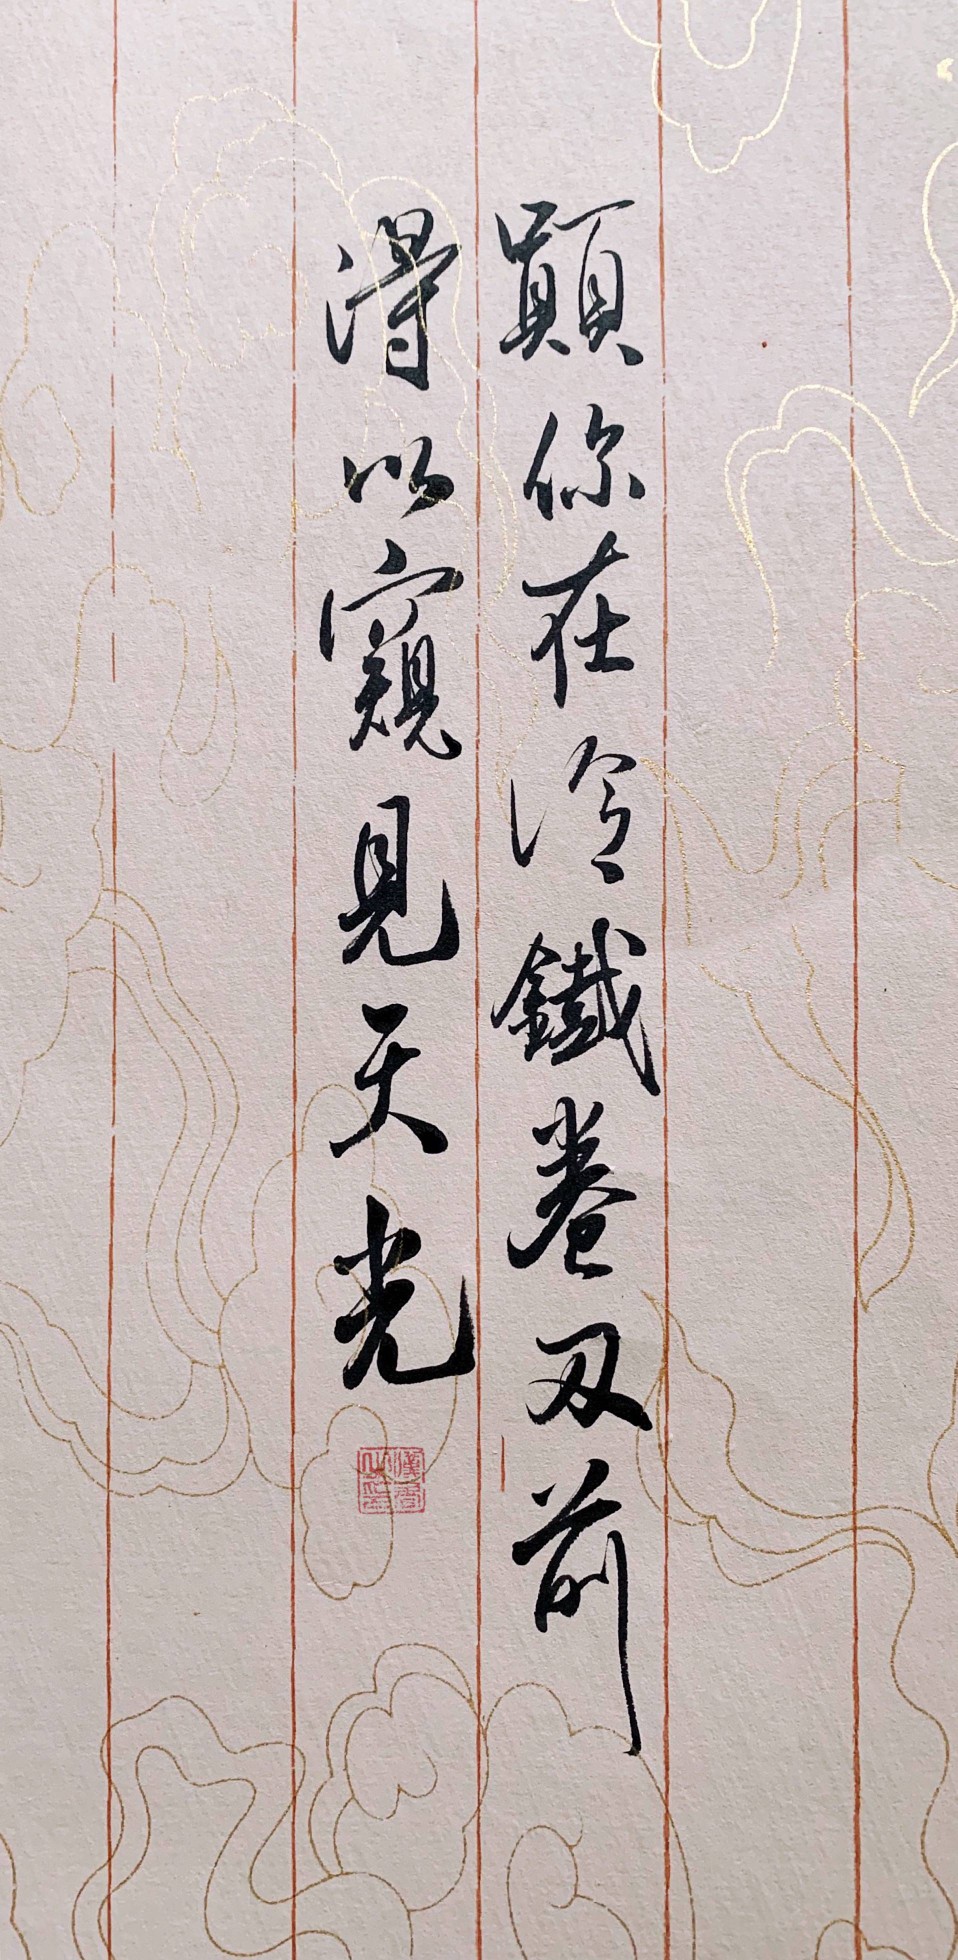 願你在冷鐵卷刃前
得以窺見天光